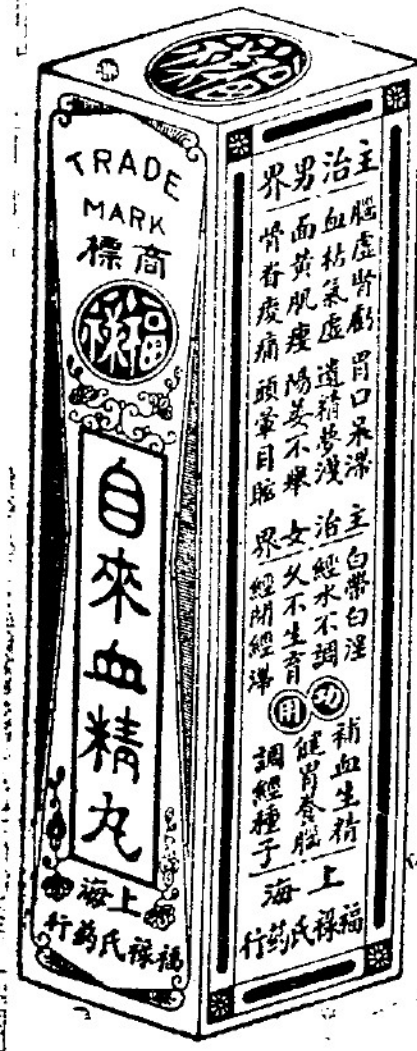 福祿
TRADE
MARK
商標
福祿
自來血精丸
上海
福祿氏药行
主治男界
腦虛腎虧 胃口呆滯
血枯氣虛 遺精夢洩
面黃肌瘦 陽萎不舉
骨脊痠痛 頭暈目眩
主治女界
白帶白淫
經水不調
久不生育
經閉經滯
功用
補血生精
健胃養腦
調經種子
上海
福祿氏药行